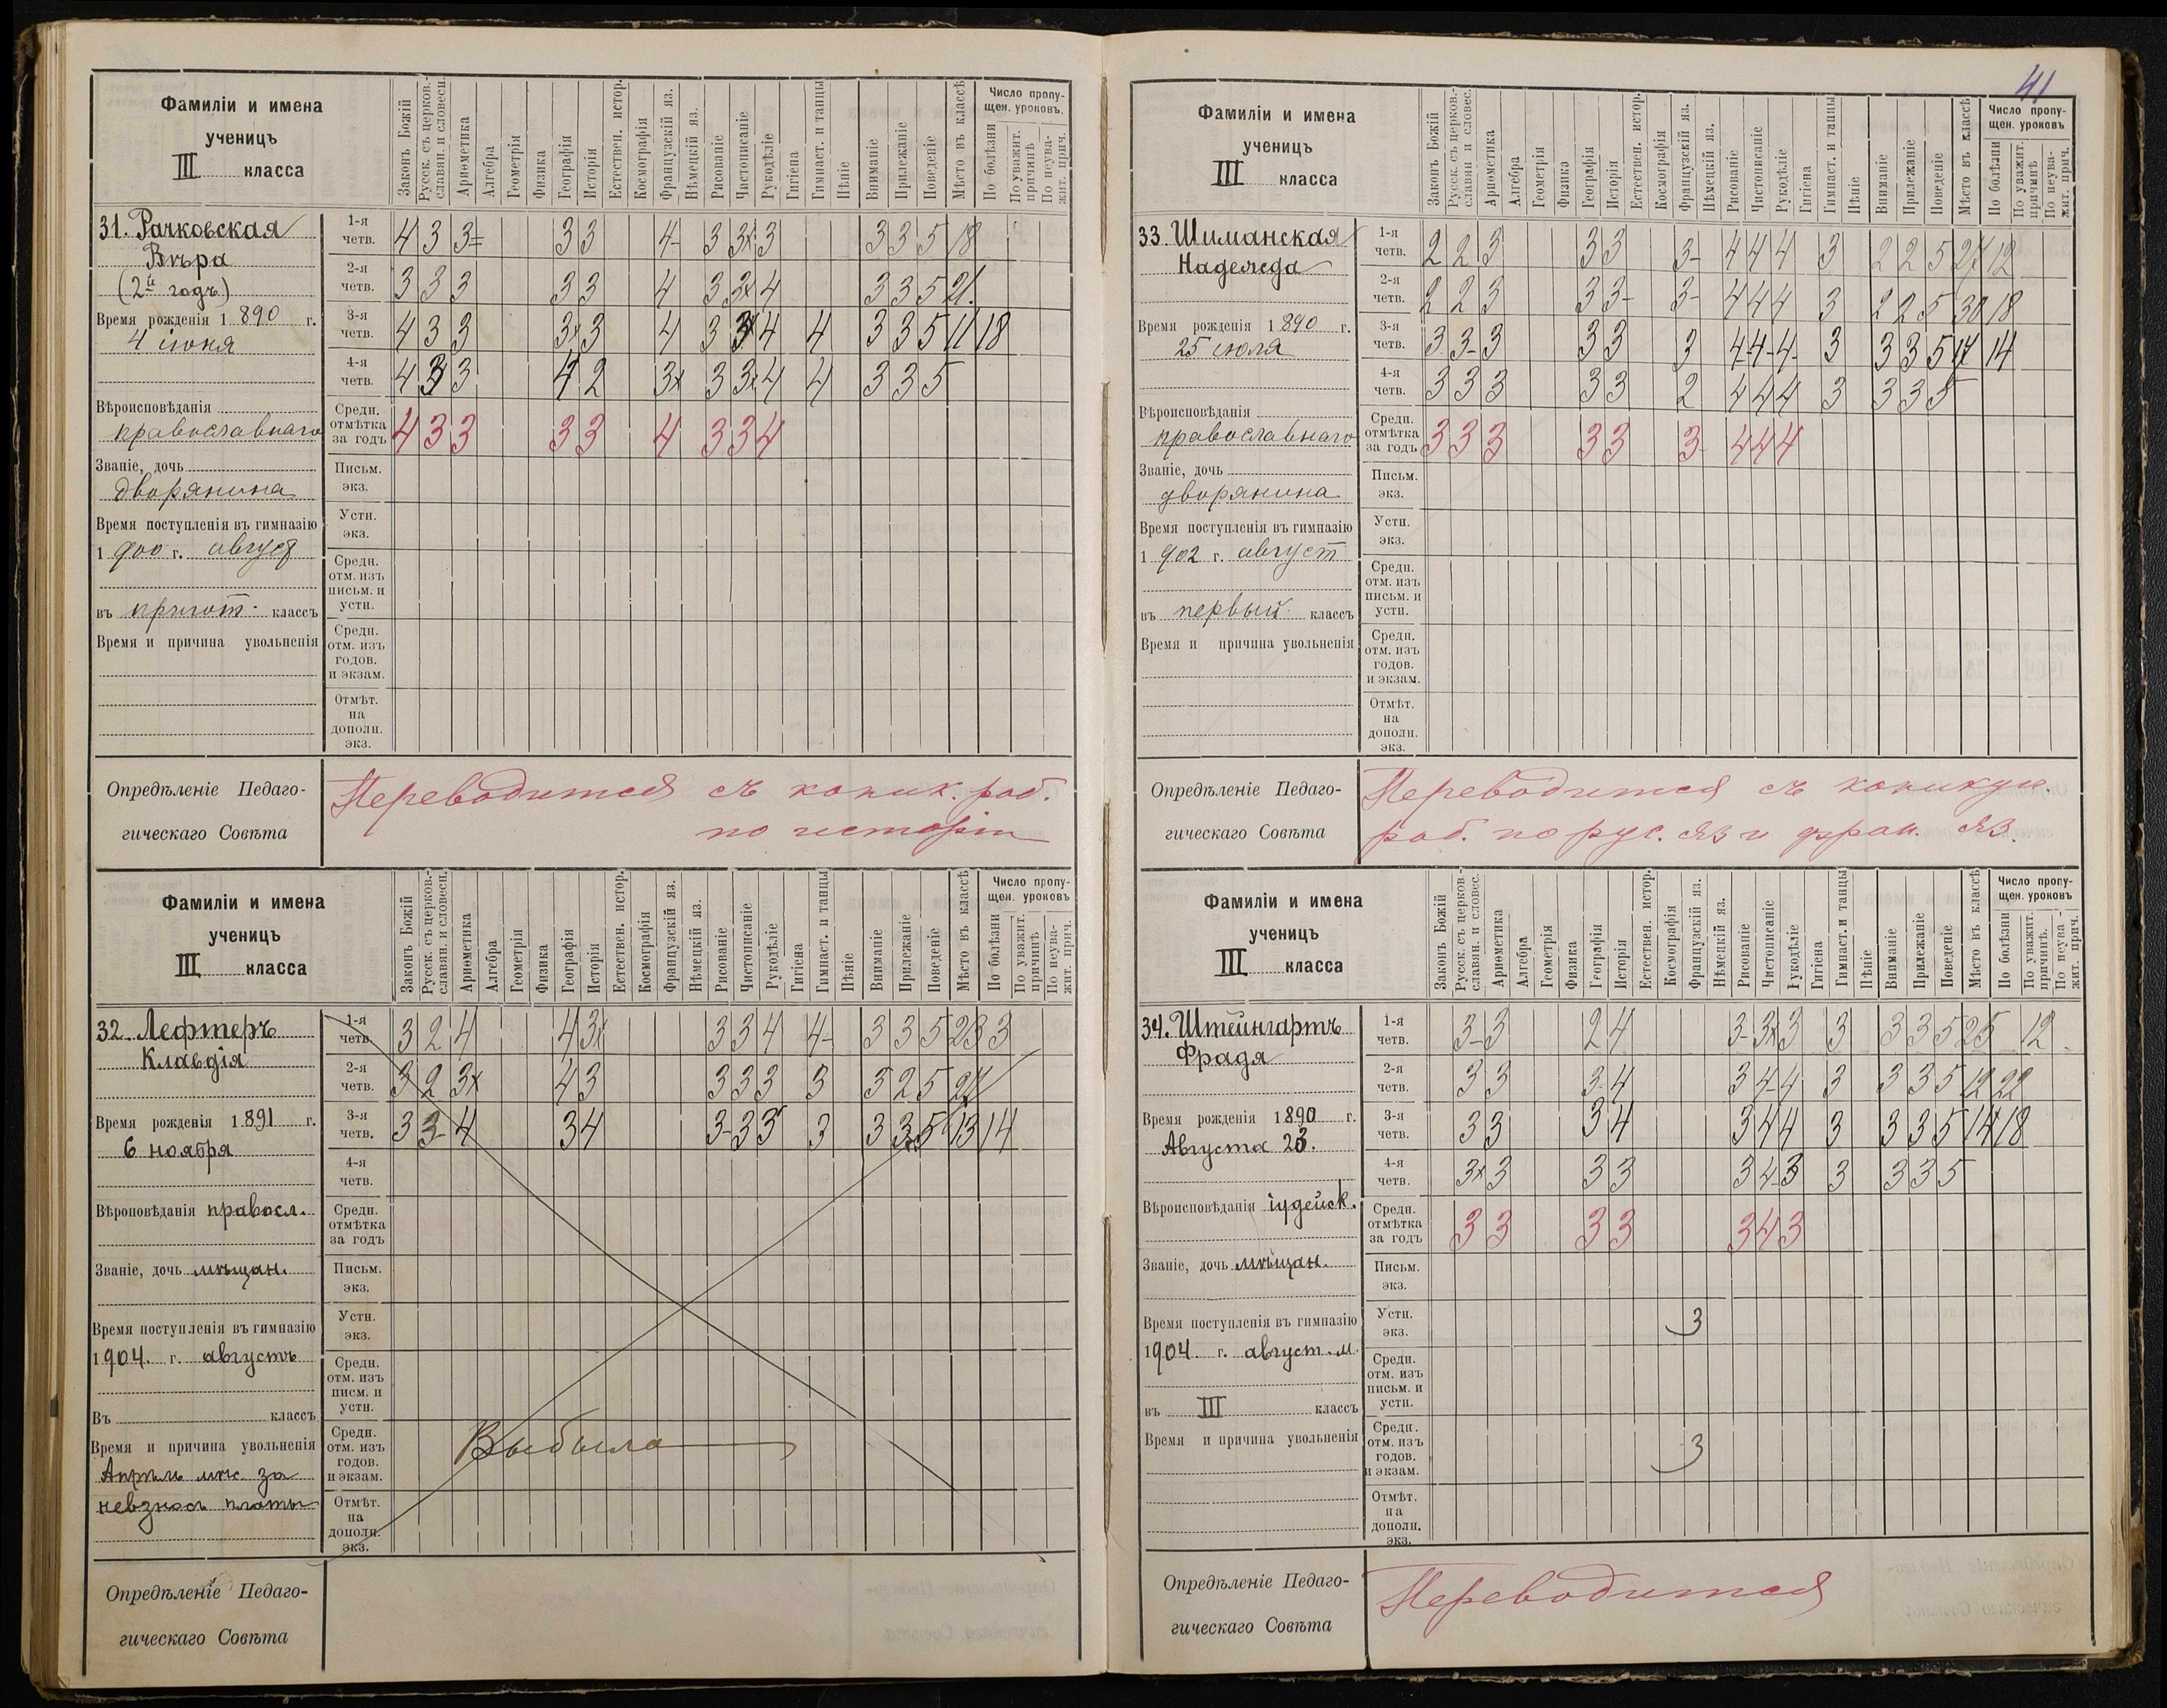 41
Фамиліи и имена
ученицъ
III класса
Законъ Божій
Русск. съ церков.-
славян. и словесн.
Ариѳметика
Алгебра
Геометрія
Физика
Географія
Исторія
Естествен. истор.
Космографія
Французскій яз.
Нѣмецкій яз.
Рисованіе
Чистописаніе
Рукодѣліе
Гигіена
Гимнаст. и танцы
Пѣніе
Вниманіе
Прилежаніе
Поведеніе
Мѣсто въ классѣ
Число пропу-
щен. уроковъ.
По болѣзни
По уважит.
причинѣ
По неува-
жит. прич.
31. Рачковская
Вѣра
(2й годъ)
Время рожденія 1890 г.
4 іюня
Вѣроисповѣданія
православнаго
Званіе, дочь
дворянина
Время поступленія въ гимназію
1900 г. август
въ пригот. классъ
Время и причина увольненія
1-я четв. 4 3 3= 3 3 4- 3 3х 3 3 3 5 18
2-я четв. 3 3 3 3 3 4 3 3х 4 3 3 5 21.
3-я четв. 4 3 3 3х 3 4 3 3 4 4 3 3 5 11 18
4-я четв. 4 3 3 4 2 3х 3 3х 4 4 3 3 5
Средн. отмѣтка за годъ 4 3 3 3 3 4 3 3 4
Письм. экз.
Устн. экз.
Средн. отм. изъ письм. и устн.
Средн. отм. изъ годов. и экзам.
Отмѣт. на дополн. экз.
Опредѣленіе Педаго-
гическаго Совѣта
Переводится съ каник. раб.
по исторіи
Фамиліи и имена
ученицъ
III класса
Законъ Божій
Русск. съ церков.-
славян. и словесн.
Ариѳметика
Алгебра
Геометрія
Физика
Географія
Исторія
Естествен. истор.
Космографія
Французскій яз.
Нѣмецкій яз.
Рисованіе
Чистописаніе
Рукодѣліе
Гигіена
Гимнаст. и танцы
Пѣніе
Вниманіе
Прилежаніе
Поведеніе
Мѣсто въ классѣ
Число пропу-
щен. уроковъ
По болѣзни
По уважит.
причинѣ
По неува-
жит. прич.
32. Лефтеръ
Клавдія
Время рожденія 1891 г.
6 ноября
Вѣроповѣданія правосл.
Званіе, дочь мѣщан.
Время поступленія въ гимназію
1904. г. августъ
Въ классъ
Время и причина увольненія
Апрѣль мѣс. за
невзносъ платы
1-я четв. 3 2 4 4 3х 3 3 4 4- 3 3 5 23 3
2-я четв. 3 2 3х 4 3 3 3 3 3 3 2 5 27
3-я четв. 3 3- 4 3 4 3- 3 3 3 3 3 5 13 14
4-я четв.
Средн. отмѣтка за годъ
Письм. экз.
Устн. экз.
Средн. отм. изъ писм. и устн.
Средн. отм. изъ годов. и экзам.
Выбыла
Отмѣт. на дополн. экз.
Опредѣленіе Педаго-
гическаго Совѣта
Фамиліи и имена
ученицъ
III класса
Законъ Божій
Русск. съ церков.-
славян и словес.
Ариѳметика
Алгебра
Геометрія
Физика
Географія
Исторія
Естествен. истор.
Космографія
Французскій яз.
Нѣмецкій яз.
Рисованіе
Чистописаніе
Рукодѣліе
Гигіена
Гимнаст. и танцы
Пѣніе
Вниманіе
Прилежаніе
Поведеніе
Мѣсто въ классѣ
Число пропу-
щен. уроковъ
По болѣзни
По уважит.
причинѣ
По неува-
жит. прич.
33 Шиманская
Надежда
Время рожденія 1890 г.
25 іюля
Вѣроисповѣданія
православнаго
Званіе, дочь
дворянина
Время поступленія въ гимназію
1902 г. август
въ первый классъ
Время и причина увольненія
1-я четв. 2 2 3 3 3 3- 4 4 4 3 2 2 5 27 12
2-я четв. 2 2 3 3 3- 3- 4 4 4 3 2 2 5 30 18
3-я четв. 3 3- 3 3 3 3 4- 4- 4- 3 3 3 5 17 14
4-я четв. 3 3 3 3 3 2 4 4 4 3 3 3 5
Средн. отмѣтка за годъ 3 3 3 3 3 3- 4 4 4
Письм. экз.
Устн. экз.
Средн. отм. изъ письм. и устн.
Средн. отм. изъ годов. и экзам.
Отмѣт. на дополн. экз.
Опредѣленіе Педаго-
гическаго Совѣта
Переводится съ каникул.
раб. по рус. яз и фран. яз.
Фамиліи и имена
ученицъ
III класса
Законъ Божій
Русск. съ церков.-
славян. и словес.
Ариѳметика
Алгебра
Геометрія
Физика
Географія
Исторія
Естествен. истор.
Космографія
Французскій яз.
Нѣмецкій яз.
Рисованіе
Чистописаніе
Рукодѣліе
Гигіена
Гимнаст. и танцы
Пѣніе
Вниманіе
Прилежаніе
Поведеніе
Мѣсто въ классѣ
Число пропу-
щен. уроковъ
По болѣзни
По уважит.
причинѣ.
По неува-
жит. прич.
34. Штейнгартъ
Фрадя
Время рожденія 1890 г.
Августа 23.
Вѣроисповѣданія іудейск.
Званіе, дочь мѣщан.
Время поступленія въ гимназію
1904 г. август. м.
въ III классъ
Время и причина увольненія
1-я четв. 3- 3 2 4 3- 3х 3 3 3 3 5 25 12
2-я четв. 3 3 3- 4 3 4- 4 3 3 3 5 12 22
3-я четв. 3 3 3 4 3 4 4 3 3 3 5 14 18
4-я четв. 3х 3 3 3 3 4- 3 3 3 3 5
Средн. отмѣтка за годъ 3 3 3 3 3 4 3
Письм. экз.
Устн. экз. 3
Средн. отм. изъ письм. и устн.
Средн. отм. изъ годов. и экзам. 3
Отмѣт. на дополн. экз.
Опредѣленіе Педаго-
гическаго Совѣта
Переводится